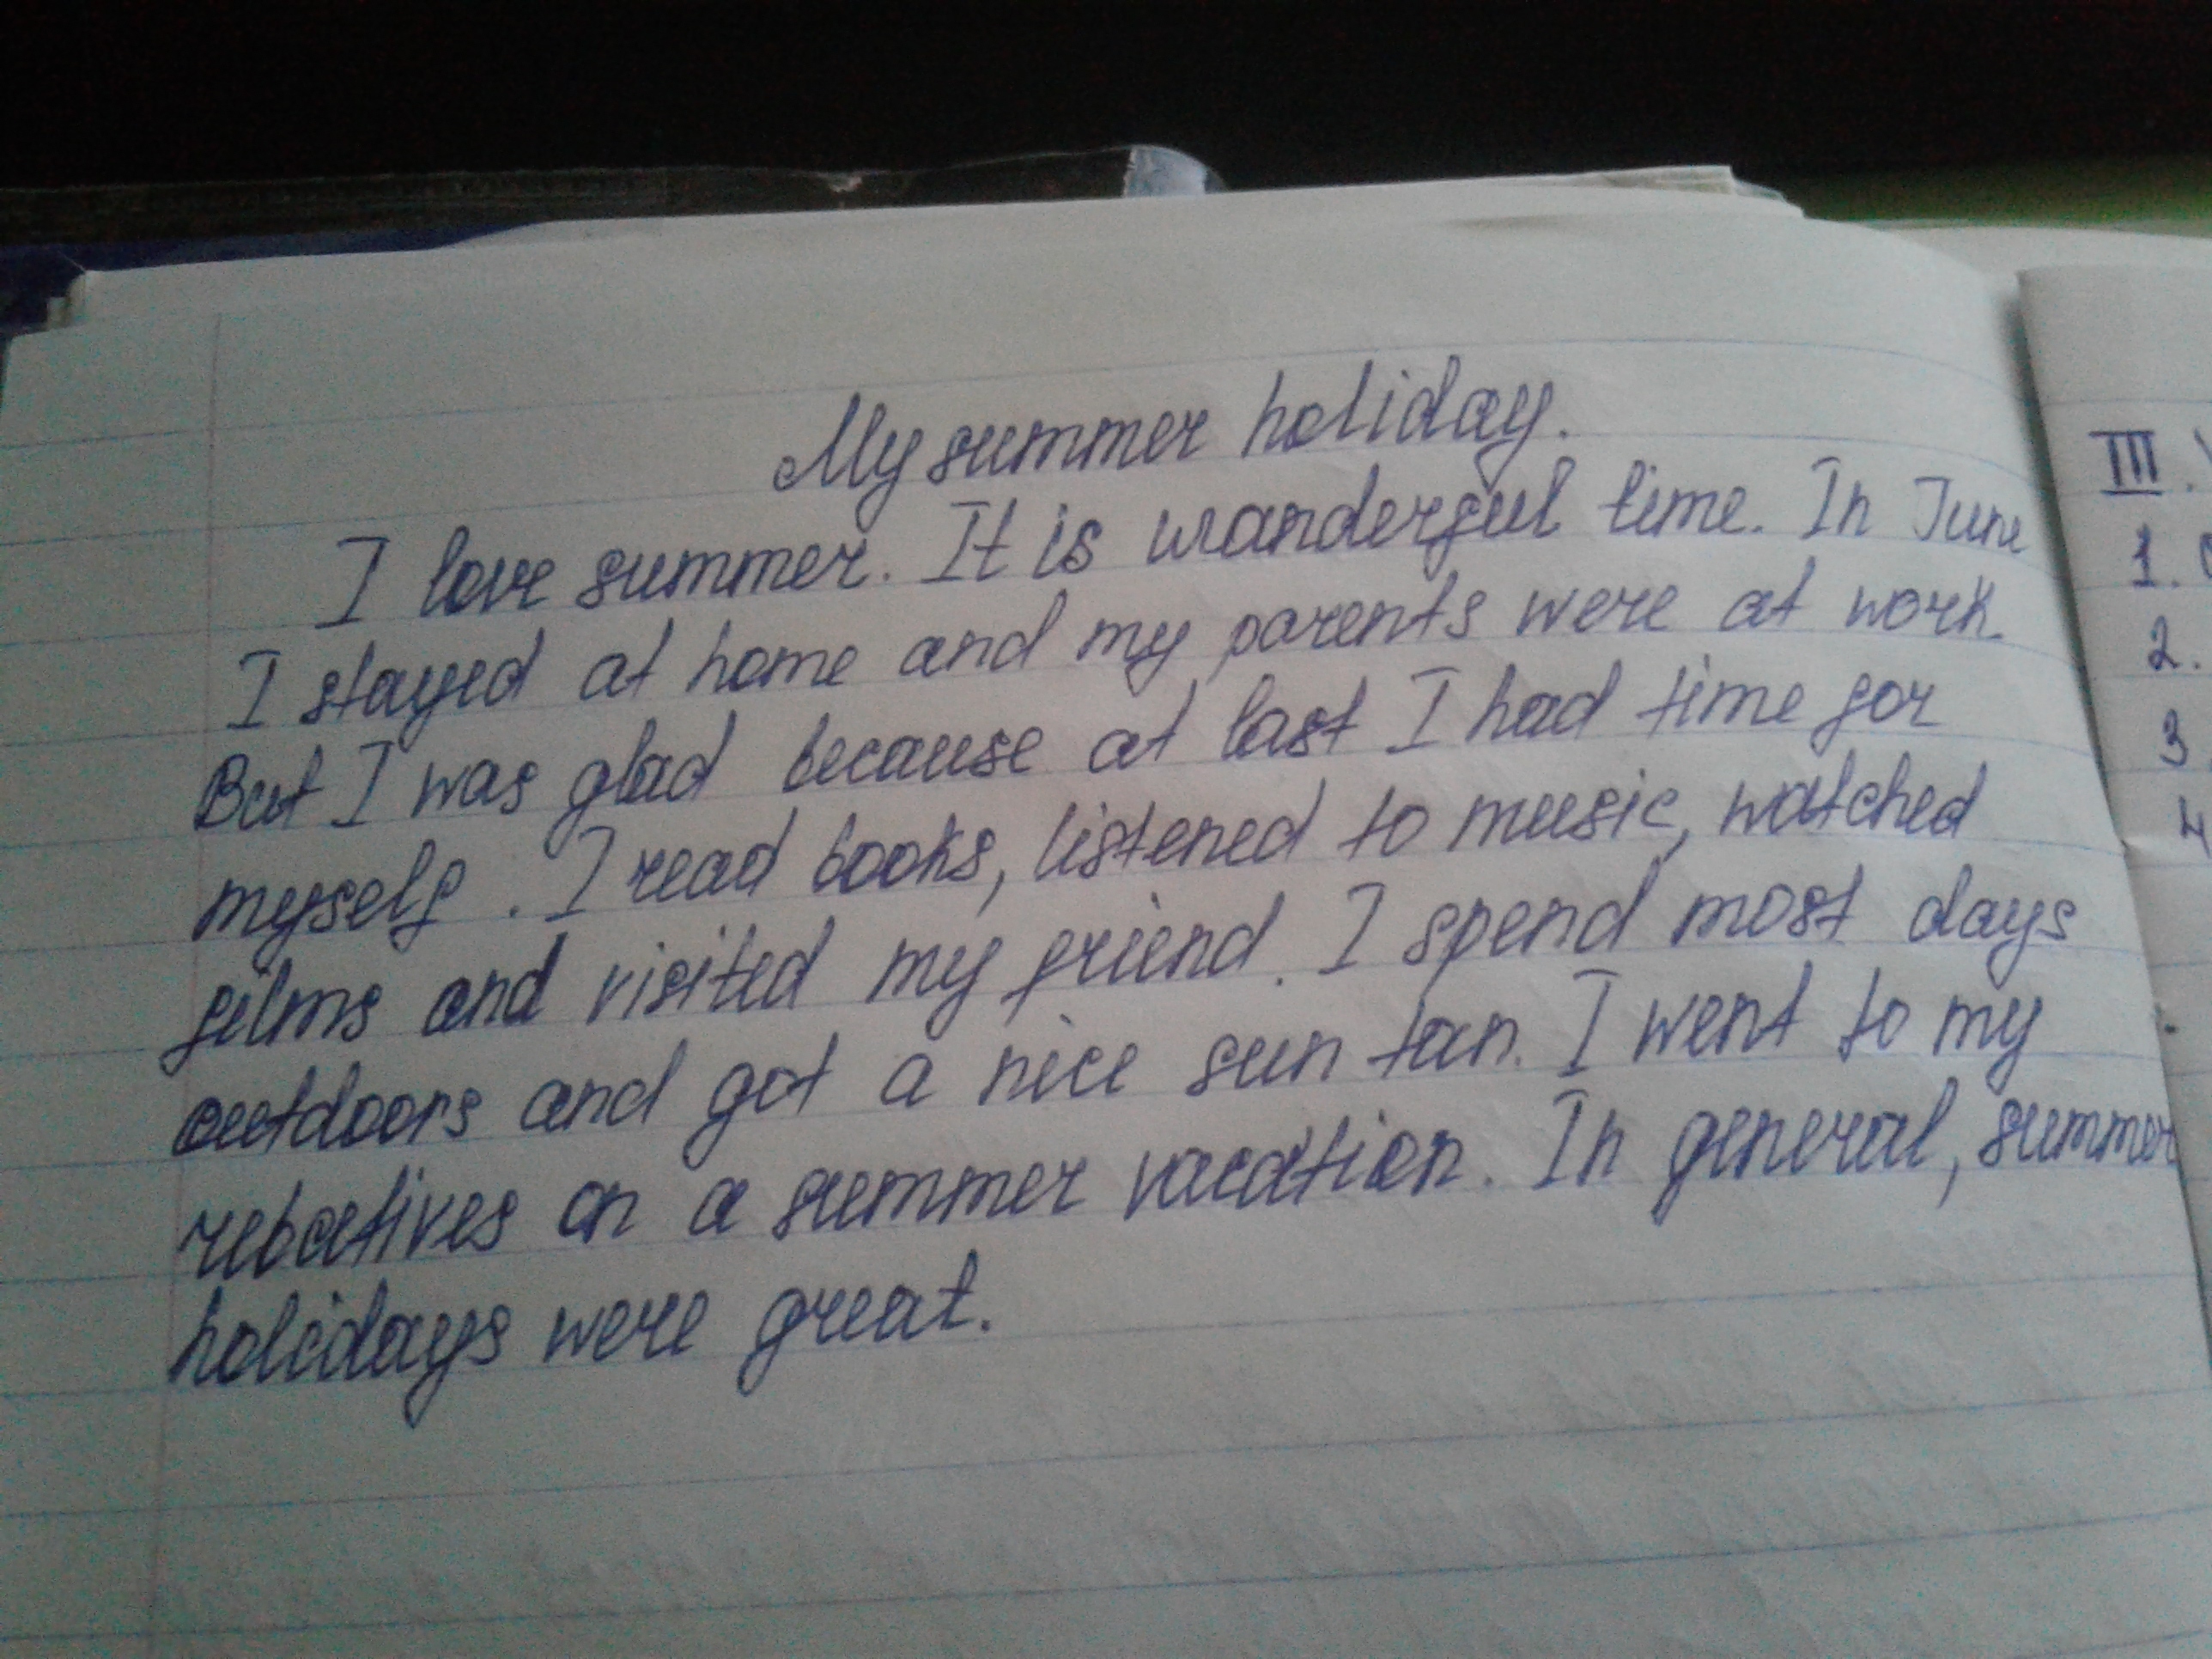 My summer holiday.
I love summer. It is wanderful time. In June
I stayed at home and my parents were at work.
But I was glad because at last I had time for
myself. I read books, listened to music, watched
films and visited my friend. I spend most days
outdoors and got a nice sun tan. I went to my
relatives on a summer vacation. In general, summer
holidays were great.
III.
1.
2.
3.
4